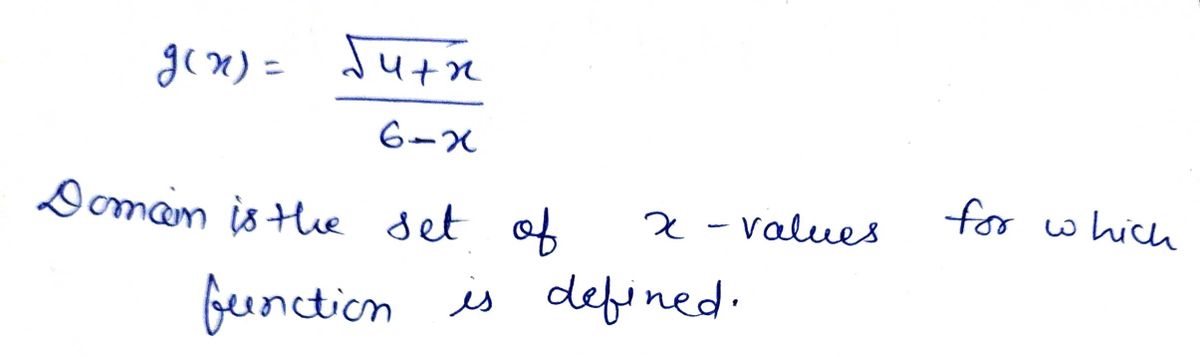 g(x) = √4+x
6-x
Domain is the set of x - values for which
function is defined.